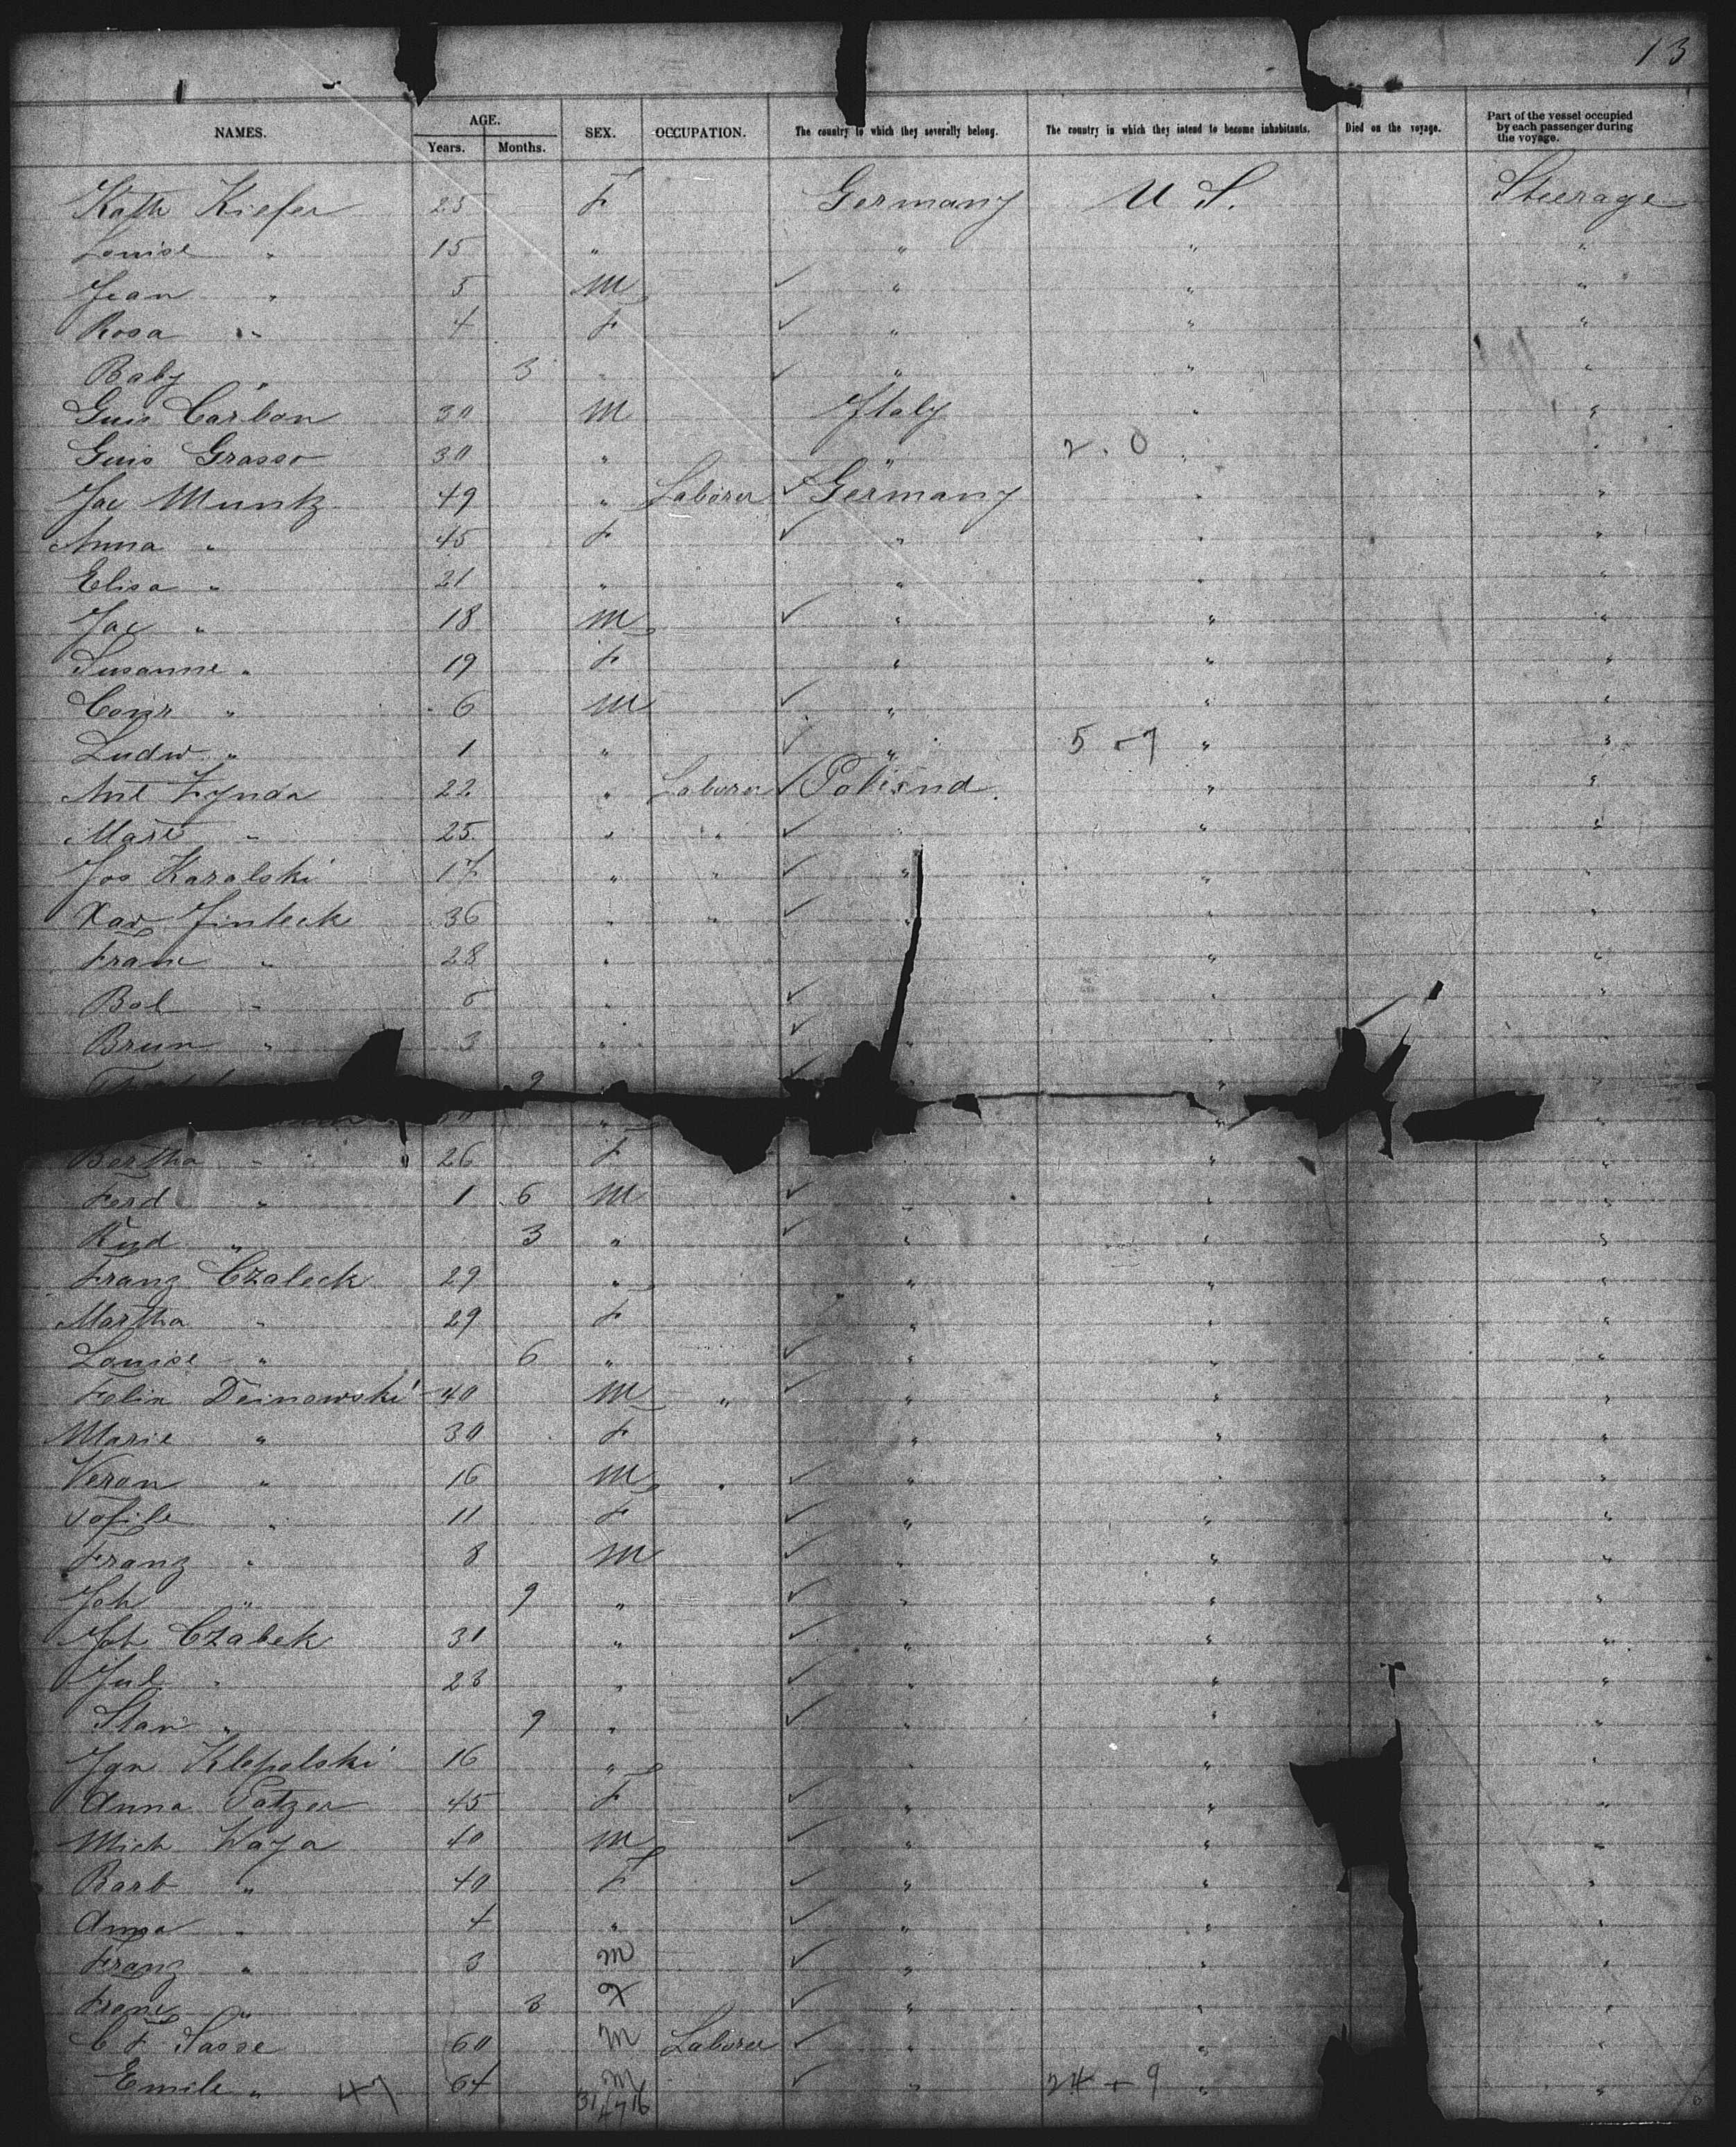 13
NAMES. AGE. Years. Months. SEX. OCCUPATION. The country to which they severally belong. The country in which they intend to become inhabitants. Died on the voyage. Part of the vessel occupied by each passenger during the voyage.
Kath Kiefer 25 F Germany U S. Steerage
Louise " 15 " " " "
Jean " 5 M ✓ " " "
Rosa " 4 F ✓ " " "
Baby " 3 " ✓ " " "
Guis Carbon 30 M Italy " "
Guis Grasso 30 " " 2. 0 " "
Jac Muntz 49 " Laborer ✓ Germany " "
Anna " 45 F ✓ " " "
Elisa " 21 " " " "
Jac " 18 M ✓ " " "
Susanne " 19 F " " "
Conr " 6 M ✓ " " "
Ludw " 1 " ✓ " 5 - 7 " "
Ant Zynda 22 " Laborer ✓ Poland " "
Mari " 25 " " ✓ " " "
Jos Karalski 17 " " ✓ " " "
Xav Jinteck 36 " " ✓ " " "
Franc " 28 " " "
Bol " " ✓ " "
Brun " 3 " ✓ " " "
9 " ✓ " " "
" " "
Bertha " 26 F " " "
Ferd " 1 6 M ✓ " " "
Rud " 3 " ✓ " " "
Franz Czaleck 29 " " " "
Martha " 29 F " " "
Louise " 6 " ✓ " " "
Felix Deinowski 40 M " ✓ " " "
Marie " 30 F " " "
Veron " 16 M " ✓ " " "
Tofile " 11 F ✓ " " "
Franz " 8 M ✓ " " "
Joh " 9 " ✓ " " "
Joh Czabek 31 " ✓ " " "
Jul " 23 " ✓ " " "
Stan " 9 " ✓ " " "
Ign Klopolski 16 " " " "
Anna Patzer 45 F ✓ " " "
Mich Waja 40 M ✓ " " "
Barb " 40 F ✓ " " "
Anna " 4 " ✓ " " "
Franz " 3 m ✓ " " "
Franc " 3 ✓ " " "
C F Sasse 60 m Laborer ✓ " " "
Emile " 47 64 m ✓ " 24 + 9 " "
31 47 16